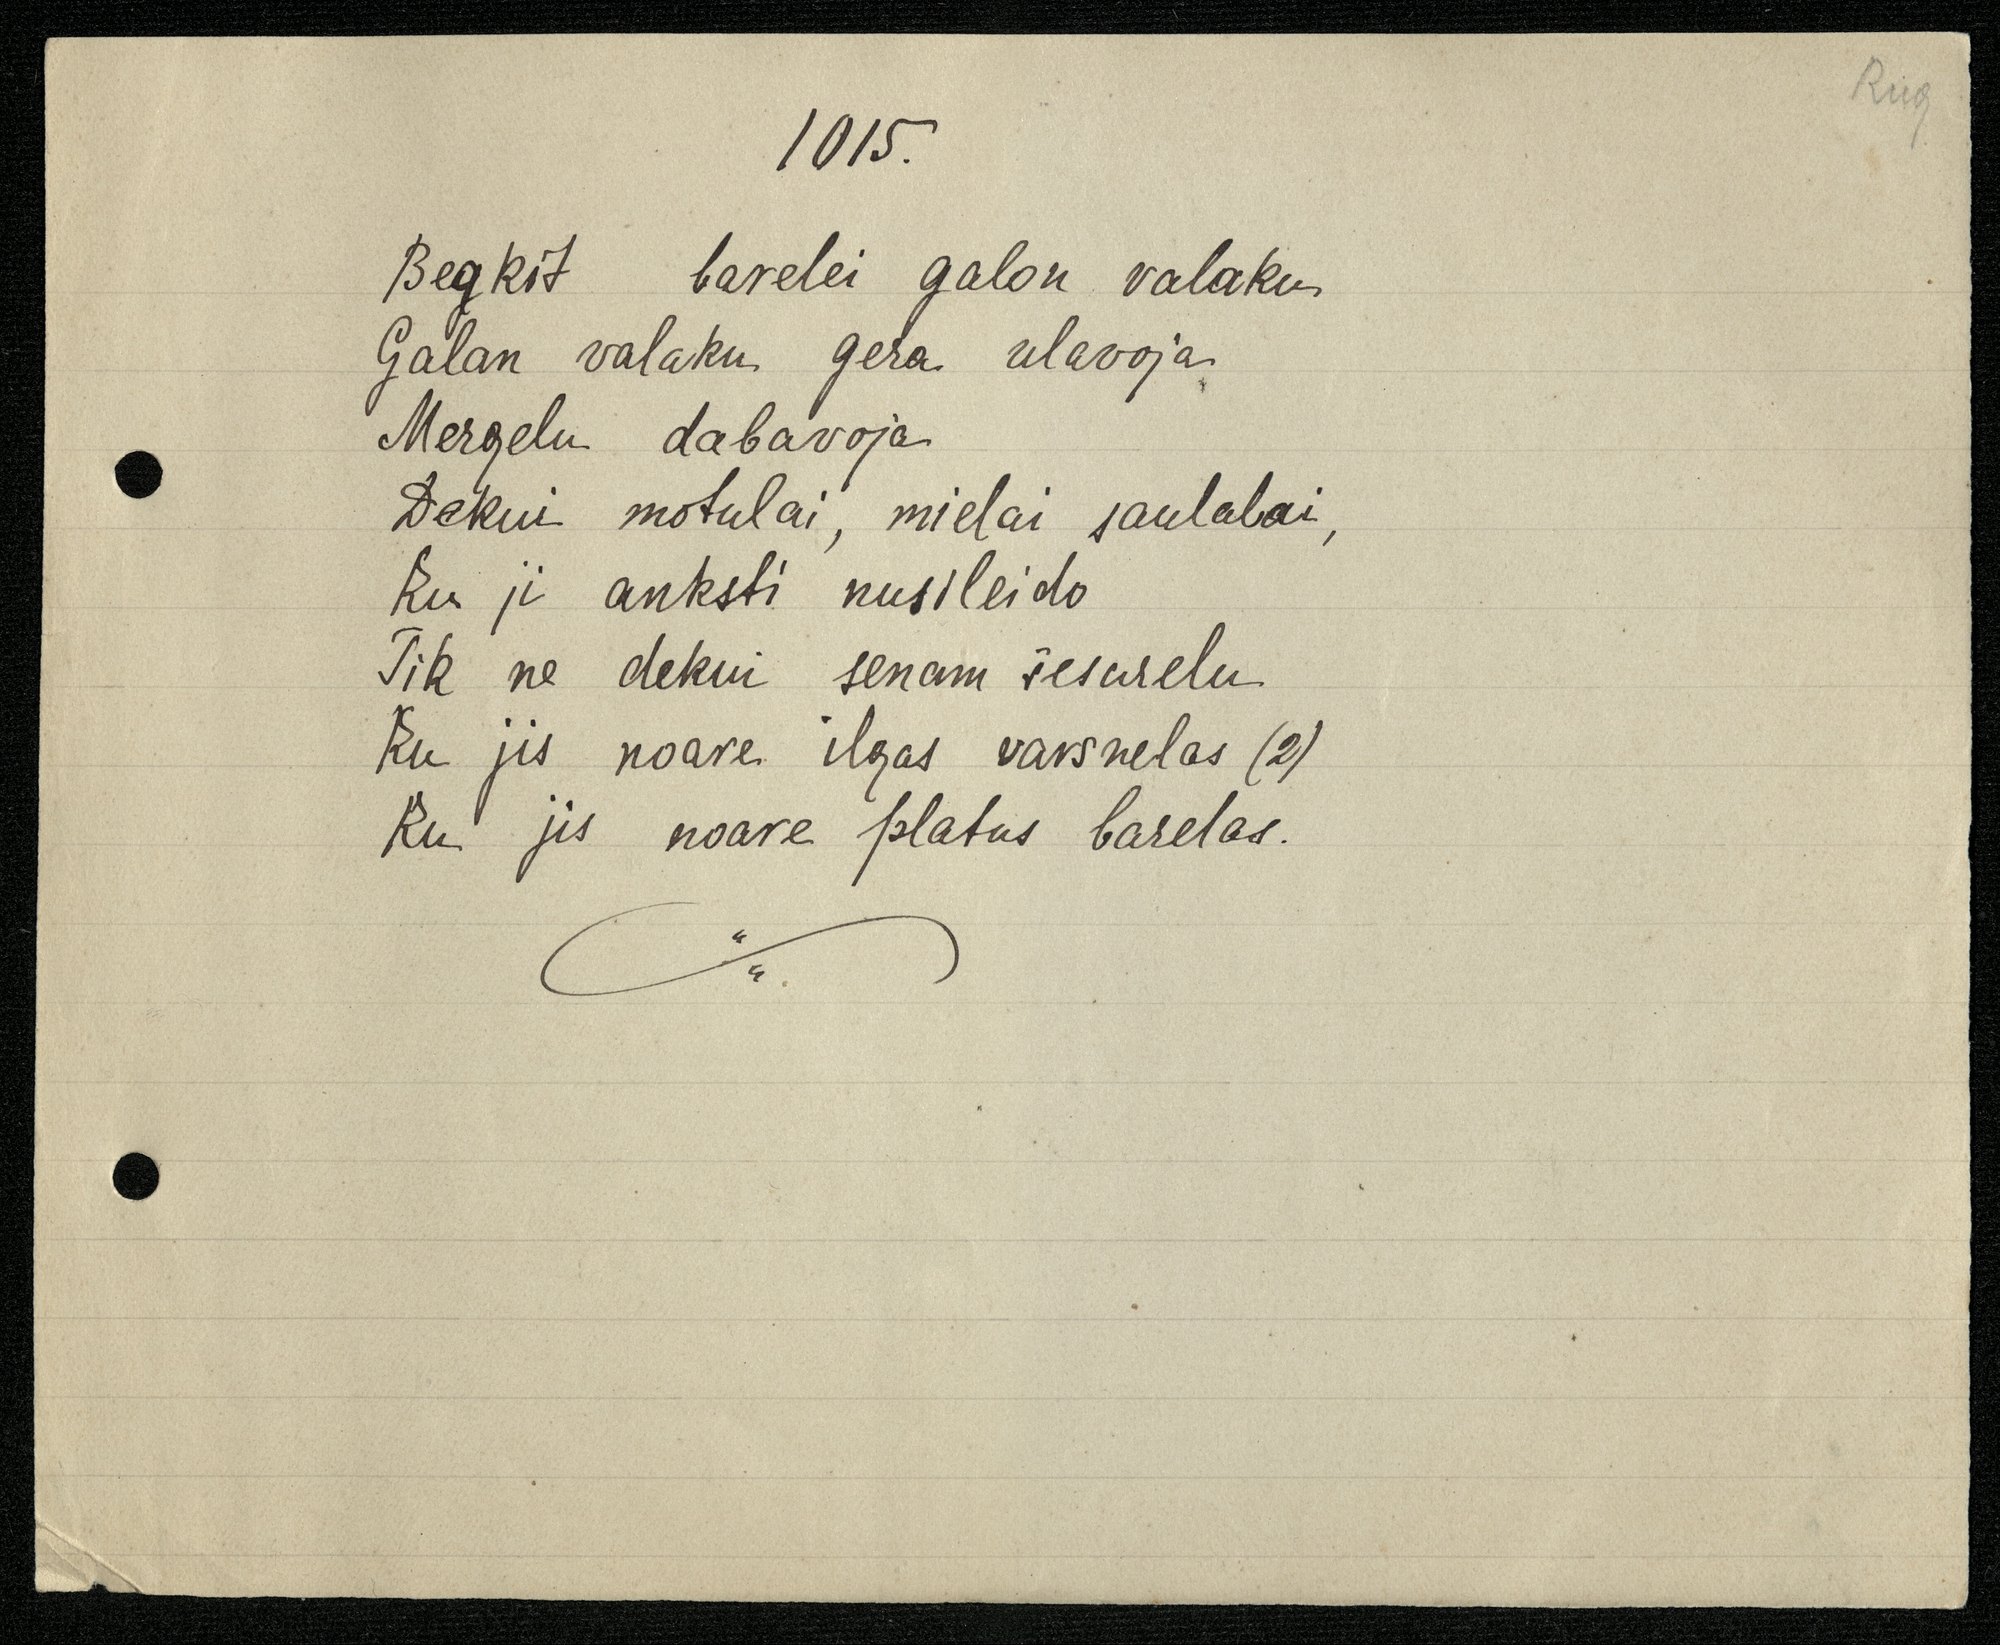 Rug
1015.
Begkit barelei galon valaku
Galan valaku gera ulavoja
Mergelu dabavoja
Dekui motulai, mielai saulalai,
Ku ji anksti nusileido
Tik ne dekui senam šesurelu
Ku jis noare ilgas varsnelas (2)
Ku jis noare platus barelas.